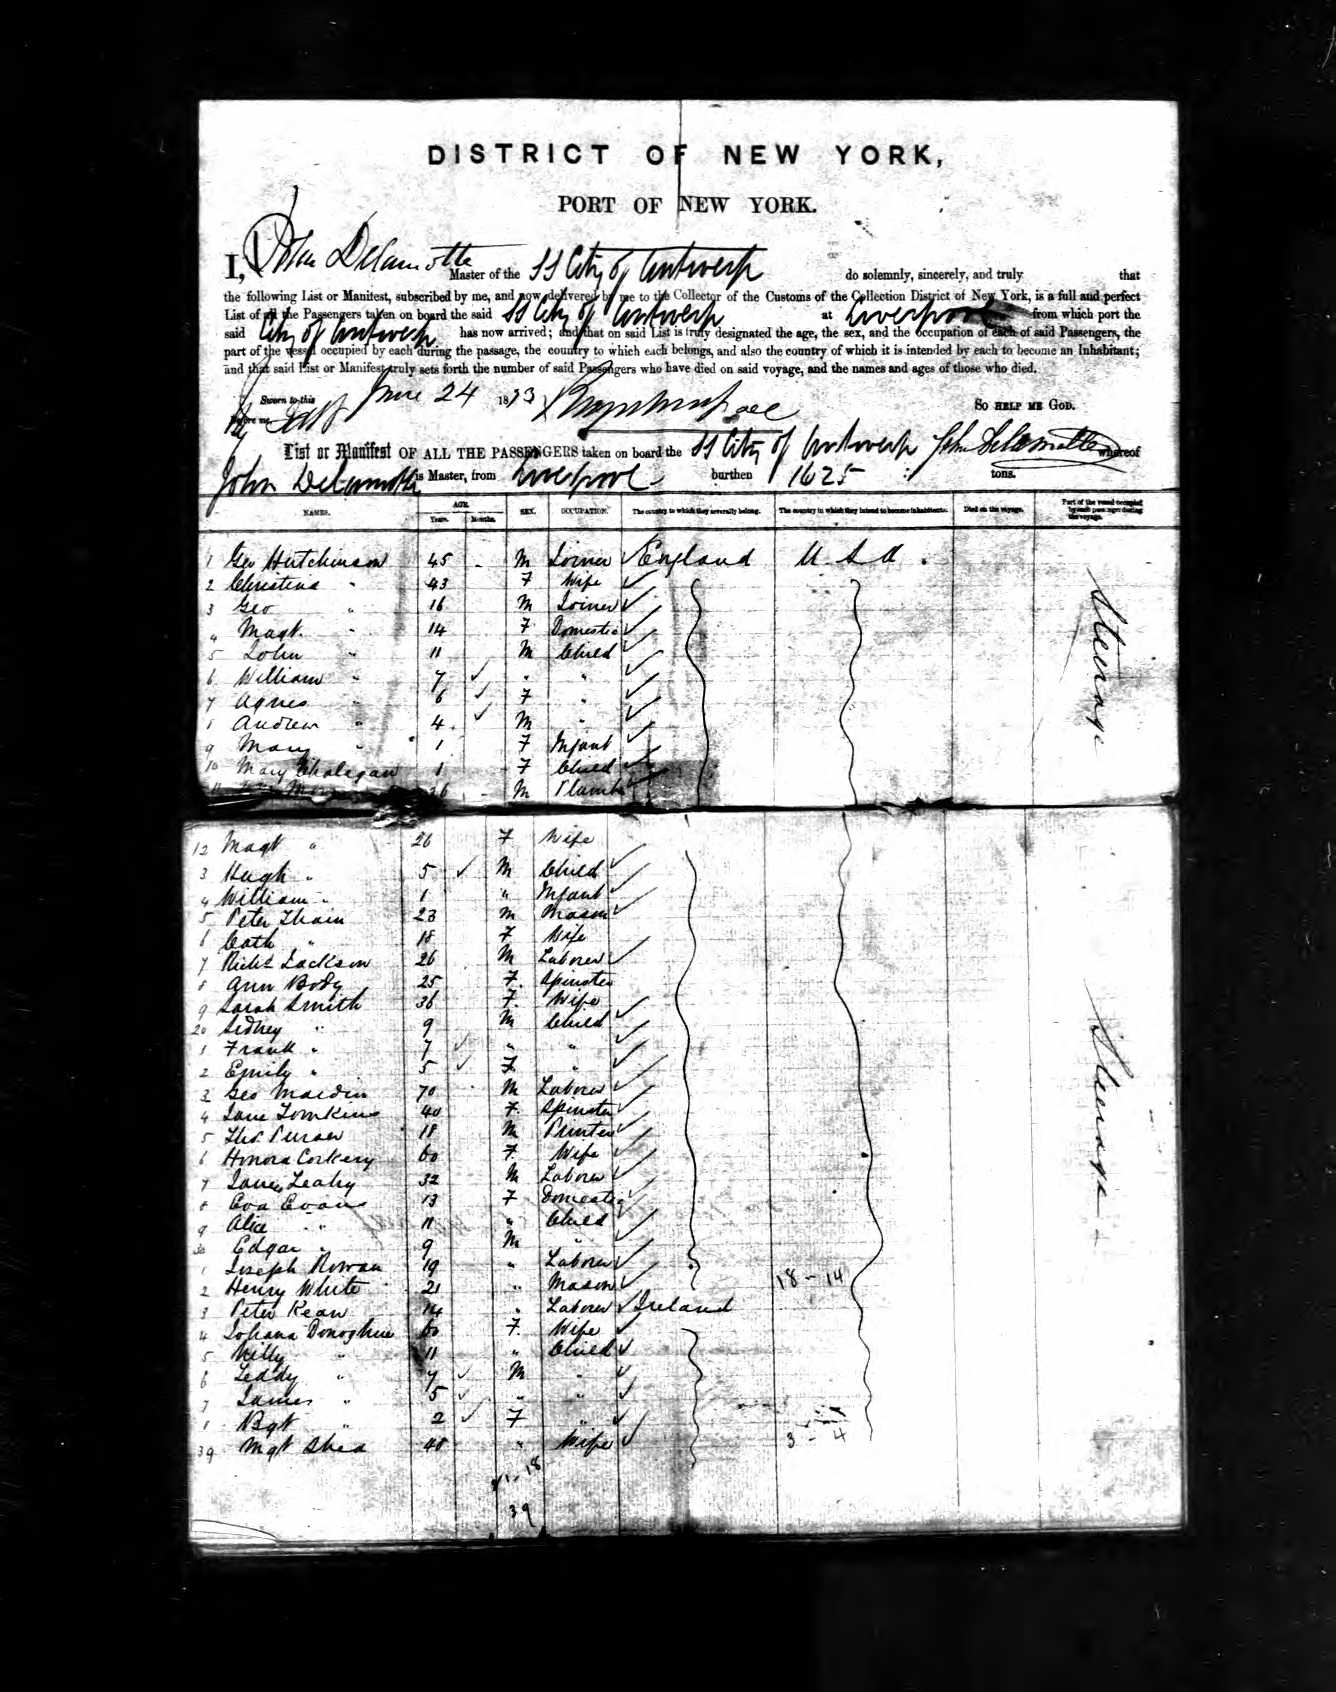 DISTRICT OF NEW YORK,
PORT OF NEW YORK.
I, John Delamotte Master of the SS City of Antwerp do solemnly, sincerely, and truly that
the following List or Manifest, subscribed by me, and now delivered by me to the Collector of the Customs of the Collection District of New York, is a full and perfect
List of all the Passengers taken on board the said SS City of Antwerp at Liverpool from which port the
said City of Antwerp has now arrived; and that on said List is truly designated the age, the sex, and the occupation of each of said Passengers, the
part of the vessel occupied by each during the passage, the country to which each belongs, and also the country of which it is intended by each to become an Inhabitant;
and that said List or Manifest truly sets forth the number of said Passengers who have died on said voyage, and the names and ages of those who died.
Sworn to this June 24 1873 So HELP ME GOD.
Before me
List or Manifest OF ALL THE PASSENGERS taken on board the SS City of Antwerp John Delamotte whereof
John Delamotte is Master, from Liverpool burthen 1625 tons.
NAMES. AGE. Years. Months. SEX. OCCUPATION. The country to which they severally belong. The country in which they intend to become inhabitants. Died on the voyage. Part of the vessel occupied by each passenger during the voyage.
1 Geo Hutchinson 45 - M Joiner ✓ England U.S.A.
2 Christina " 43 F Wife ✓
3 Geo " 16 M Joiner ✓
4 Magt. " 14 F Domestic ✓
5 John " 11 M Child ✓
6 William " 7 ✓ " " ✓
7 Agnes " 6 ✓ F " ✓
8 Andrew " 4 ✓ M " ✓
9 Mary " 1 F Infant ✓
10 Mary 1 F Child ✓
11 26 - M Plumber ✓
Steerage
12 Magt " 26 F Wife
3 Hugh " 5 ✓ M Child ✓
4 William " 1 " Infant ✓
5 Peter Thain 23 M Mason ✓
6 Cath " 18 F Wife
7 Richd Jackson 26 M Laborer ✓
8 Ann Body 25 F. Spinster
9 Sarah Smith 36 F. Wife ✓
20 Sidney " 9 M Child ✓
1 Frank " 7 ✓ " " ✓
2 Emily " 5 ✓ F. " ✓
3 Geo Mardin 70 M Laborer ✓
4 Jane Tomkins 40 F. Spinster ✓
5 Thos. 18 M Printer ✓
6 Honora Corkery 60 F. Wife ✓
7 James Leahy 32 M Laborer ✓
8 Eva Evans 13 F Domestic ✓
9 Alice " 11 " Child ✓
30 Edgar " 9 M " ✓
1 Joseph Rowan 19 " Laborer ✓
2 Henry White 21 " Mason ✓ 18 - 14
3 Peter Kean 14 " Laborer ✓ Ireland
4 Johana Donoghue 60 F. Wife ✓
5 " 11 " Child ✓
6 Teddy " 7 ✓ M " ✓
7 James " 5 ✓ " " ✓
8 Bgt " 2 ✓ F " ✓
39 Mgt Shea 40 " Wife ✓ 3 - 4
Steerage
21 - 18
39